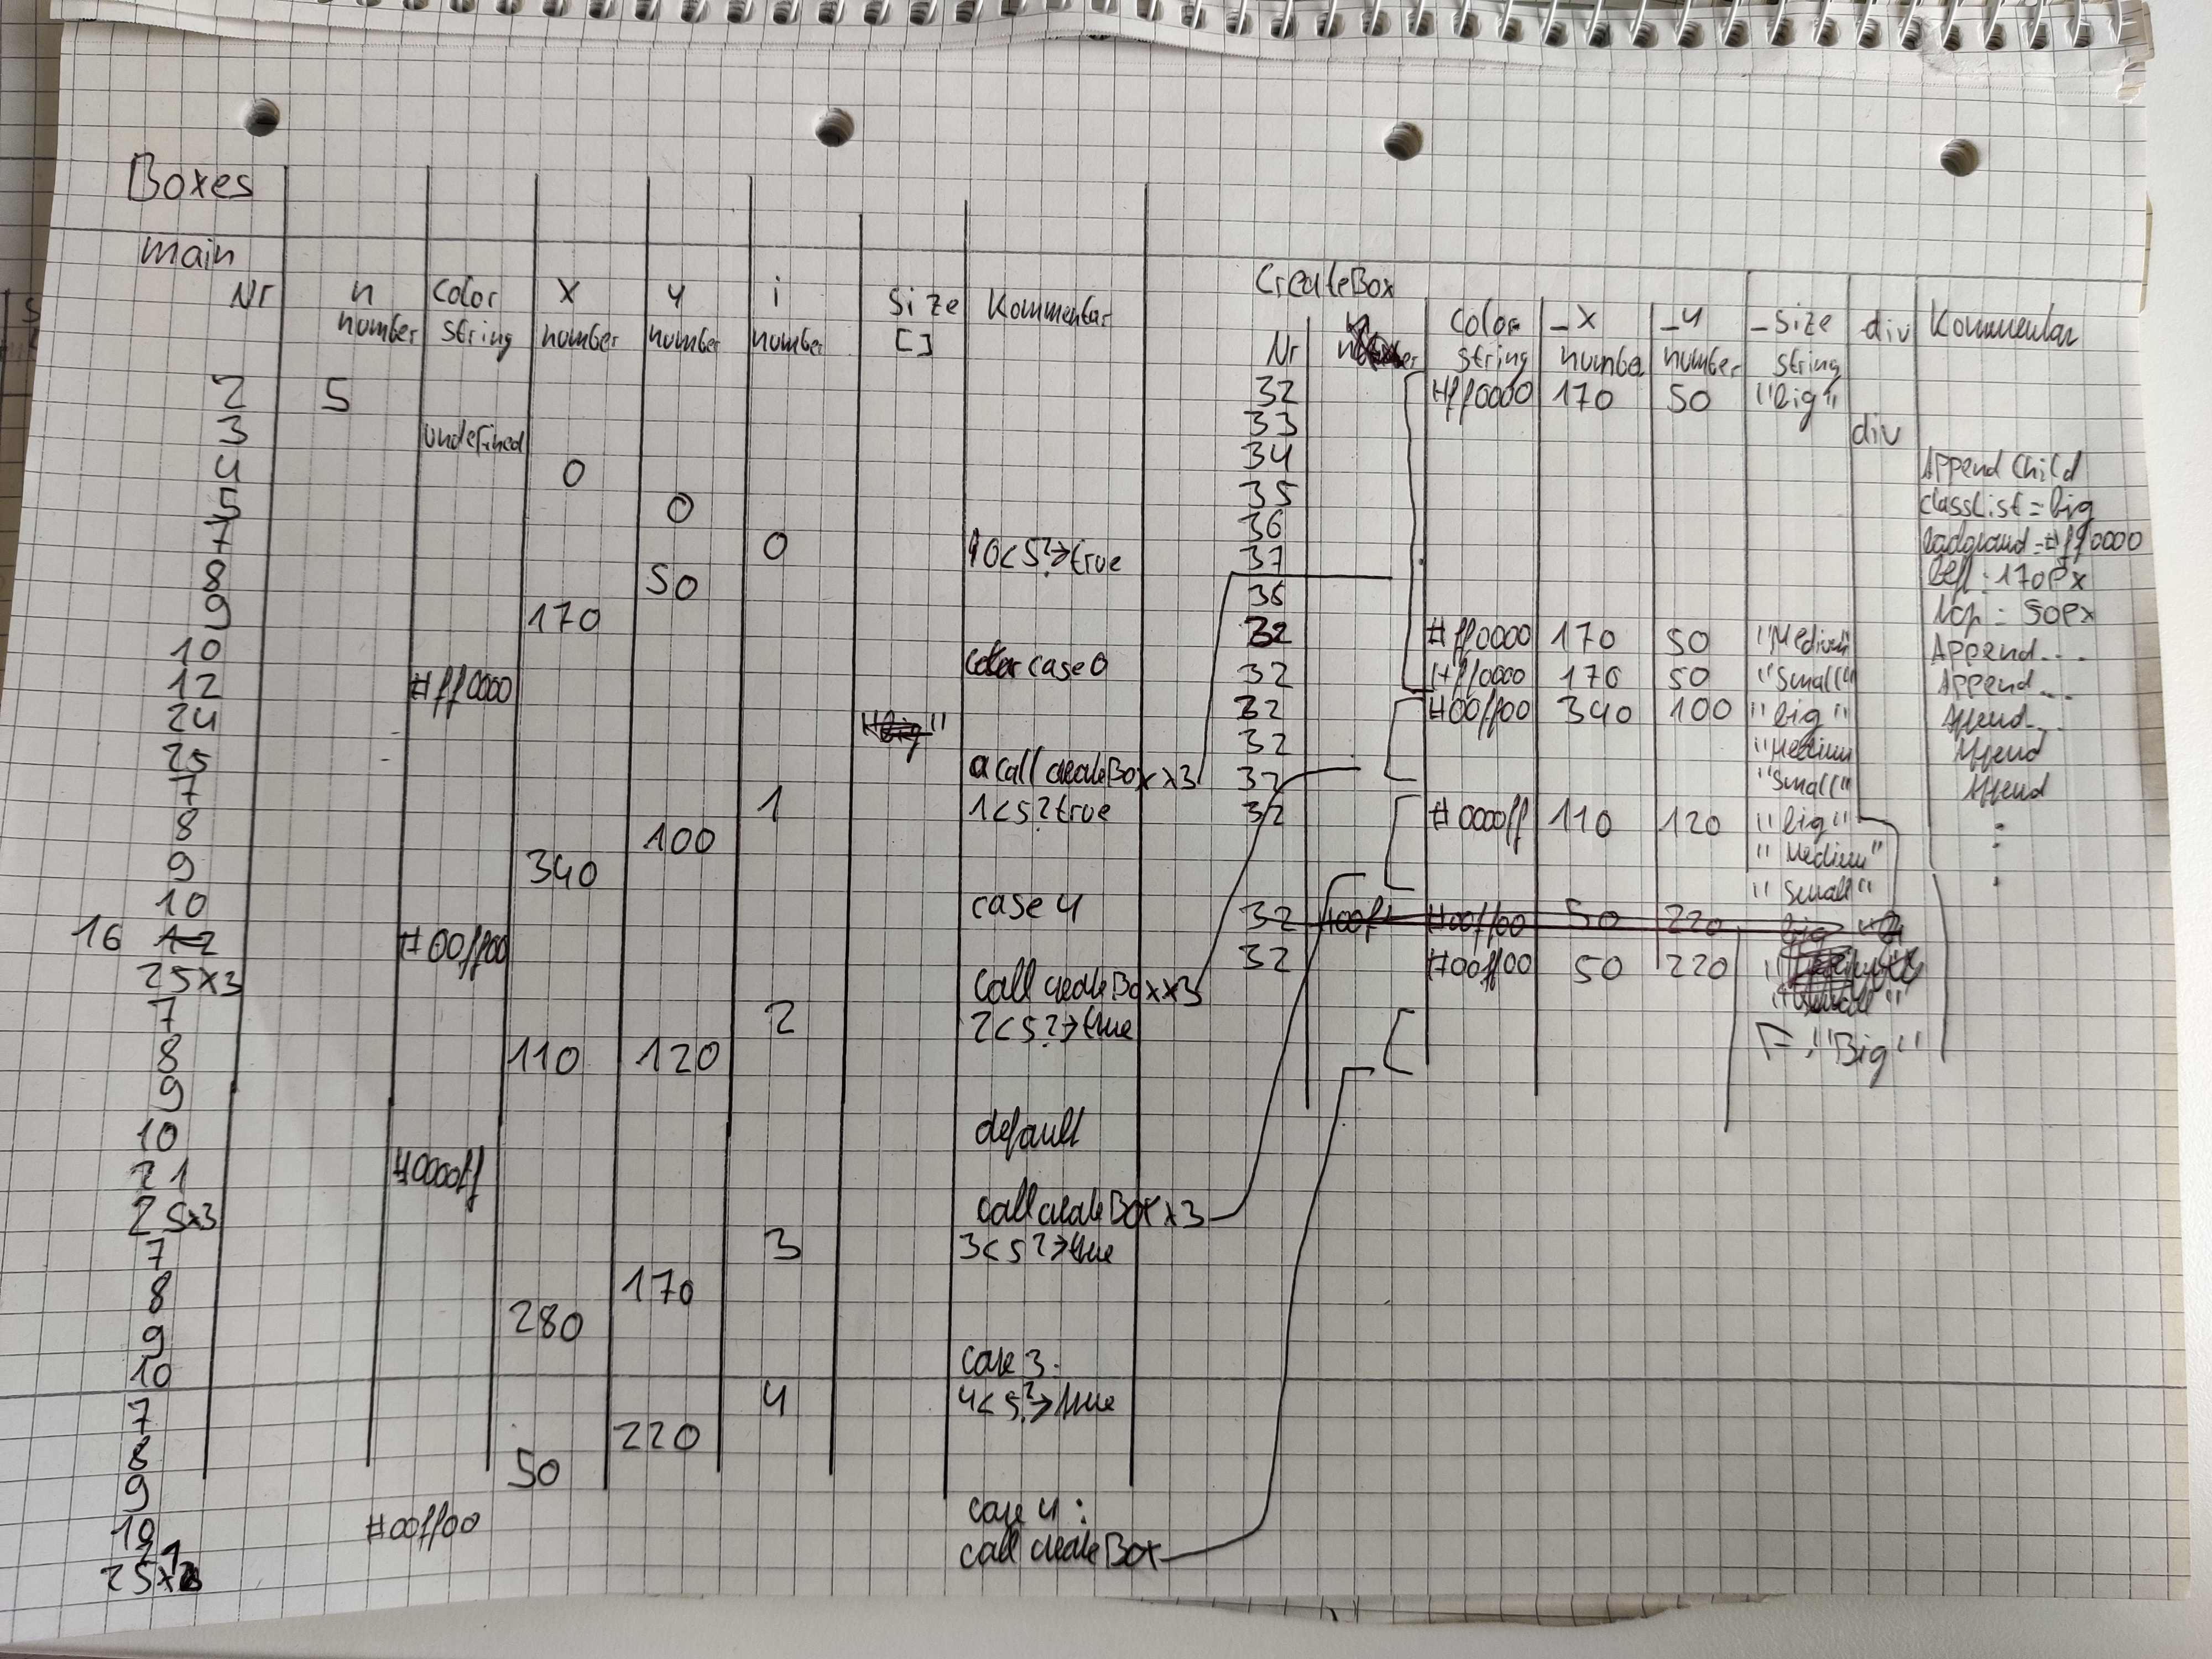 Boxes
main
Nr n color x y i size Kommentar
number string number number number []
2 5
3 undefined
4 0
5 0
7 0 0<5?→true
8 50
9 170
10 case 0
12 #ff0000
24
25 call createBox x3
7 1 1<5?true
8 100
9 340
10 case 4
16 12 #00ff00
25x3 call createBox x3
7 2 2<5?→true
8 110 120
9
10 default
21 #0000ff
25x3 call createBox x3
7 3 3<5?→true
8 170
9 280
10 case 3:
7 4 4<5?→true
8 220
9 50
10 #00ff00 case 4:
25x call createBox
CreateBox
Nr color _x _y _size div Kommentar
string number number string
32 #ff0000 170 50 "big"
33 div
34 Append Child
35 classList = big
36 background = #ff0000
37 left: 170px
36 top = 50px
32 #ff0000 170 50 "Medium" Append...
32 #ff0000 170 50 "Small" Append...
32 #00ff00 340 100 "big" Append...
32 "Medium" Append
32 "Small" Append
32 #0000ff 110 120 "big"
"Medium"
"Small"
32 #00ff00 50 220 big
32 #00ff00 50 220
"Big"